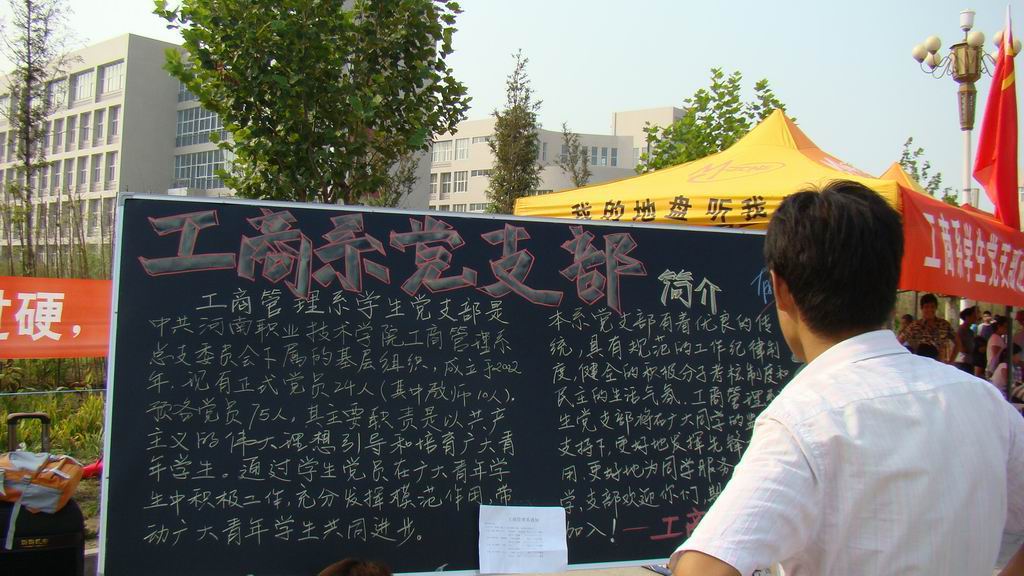 工商系党支部
简介
工商管理系学生党支部是
中共河南职业技术学院工商管理系
总支委员会下属的基层组织，成立于2002
年，现有正式党员24人（其中教师10人），
预备党员75人，其主要职责是以共产
主义的伟大理想引导和培育广大青
年学生。通过学生党员在广大青年学
生中积极工作，充分发挥模范作用，带
动广大青年学生共同进步。
本系党支部有着优良的传
统，具有规范的工作纪律制
度，健全的积极分子考核制度和
民主的生活气氛。工商管理
生党支部将在广大同学的
支持下，更好地发挥
用，更好地为同学服务
学支部欢迎你们
加入！—工商
我的地盘听我
工商系学生党支
过硬，